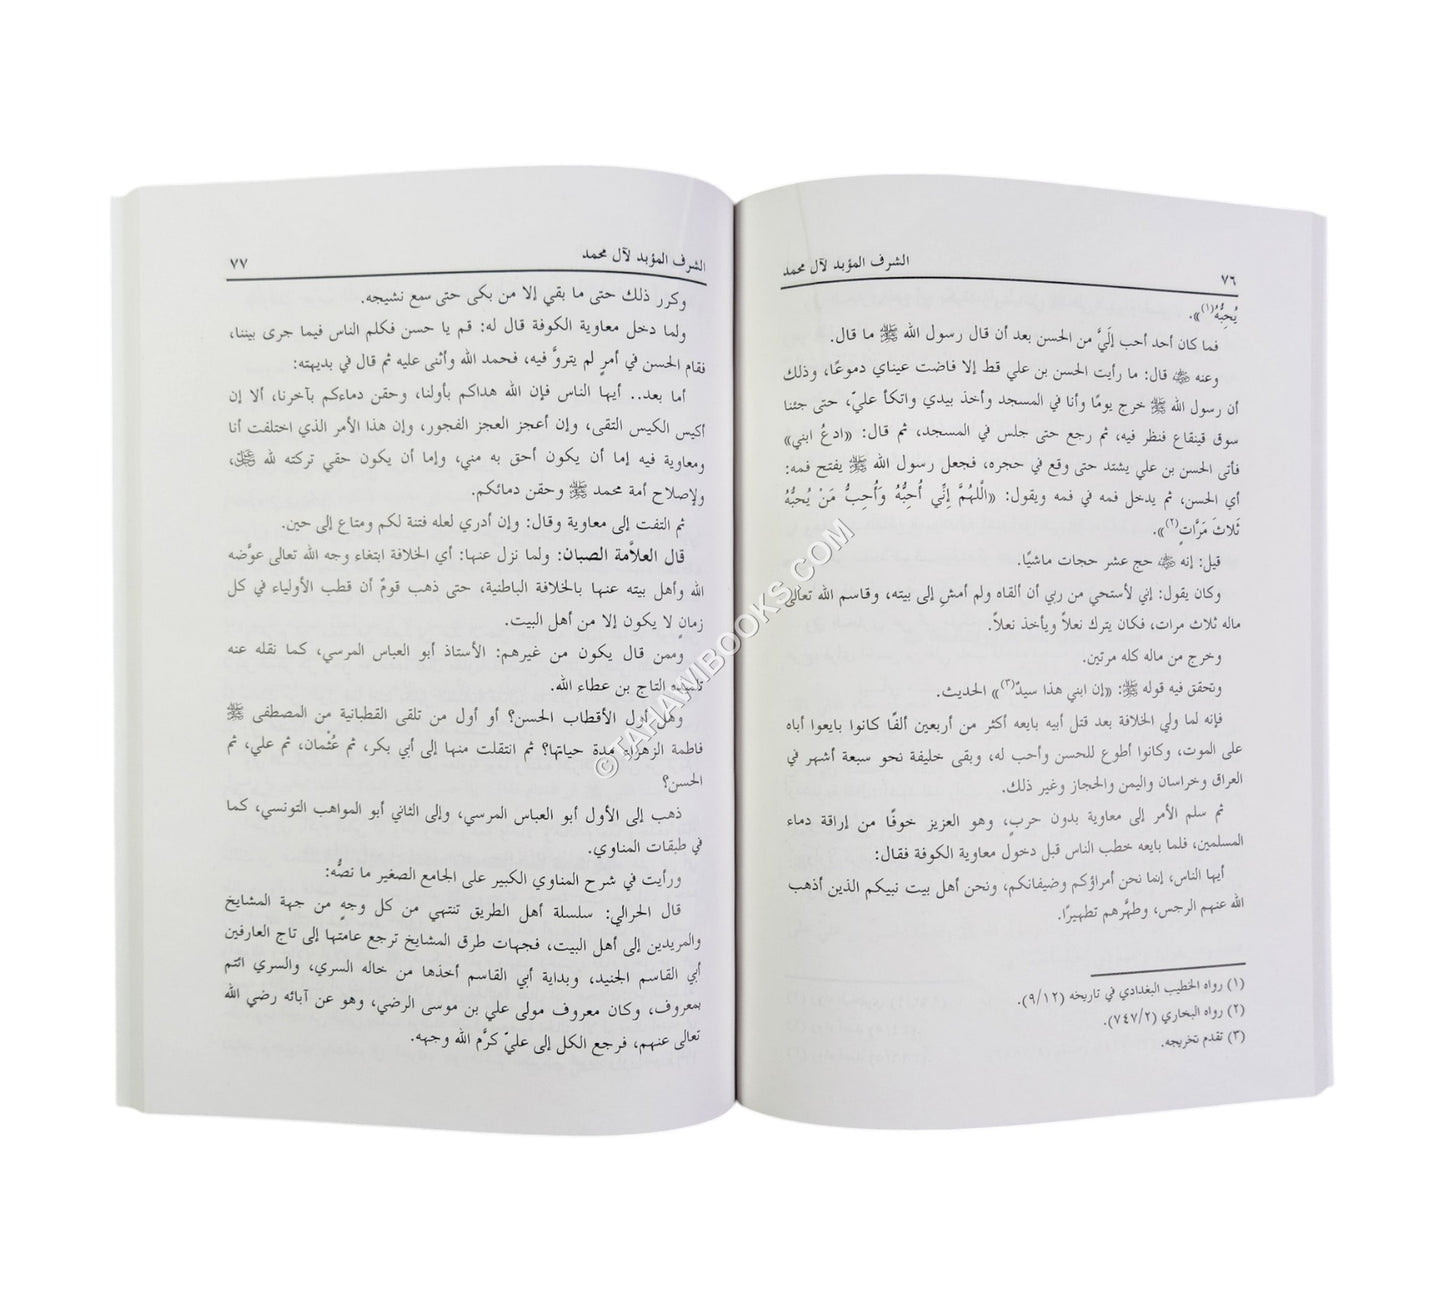 ٧٦
الشرف المؤبد لآل محمد
يُحِبُّهُ(١)».
فما كان أحد أحب إلَيَّ من الحسن بعد أن قال رسول الله ﷺ ما قال.
وعنه ﵁ قال: ما رأيت الحسن بن علي قط إلا فاضت عيناي دموعًا، وذلك
أن رسول الله ﷺ خرج يومًا وأنا في المسجد وأخذ بيدي واتكأ عليّ، حتى جئنا
سوق قينقاع فنظر فيه، ثم رجع حتى جلس في المسجد، ثم قال: «ادعُ ابني»
فأتى الحسن بن علي يشتد حتى وقع في حجره، فجعل رسول الله ﷺ يفتح فمه:
أي الحسن، ثم يدخل فمه في فمه ويقول: «الْلهُمَّ إِنِّي أُحِبُّهُ وَأُحِبُّ مَنْ يُحبُّهُ
ثَلاثَ مَرَّاتٍ(٢)».
قيل: إنه ﵁ حج عشر حجات ماشيًا.
وكان يقول: إني لأستحي من ربي أن ألقاه ولم أمشِ إلى بيته، وقاسم الله تعالى
ماله ثلاث مرات، فكان يترك نعلاً ويأخذ نعلاً.
وخرج من ماله كله مرتين.
وتحقق فيه قوله ﷺ: «إن ابني هذا سيدٌ(٣)» الحديث.
فإنه لما ولي الخلافة بعد قتل أبيه بايعه أكثر من أربعين ألفًا كانوا بايعوا أباه
على الموت، وكانوا أطوع للحسن وأحب له، وبقى خليفة نحو سبعة أشهر في
العراق وخراسان واليمن والحجاز وغير ذلك.
ثم سلم الأمر إلى معاوية بدون حربٍ، وهو العزيز خوفًا من إراقة دماء
المسلمين، فلما بايعه خطب الناس قبل دخول معاوية الكوفة فقال:
أيها الناس، إنما نحن أمراؤكم وضيفانكم، ونحن أهل بيت نبيكم الذين أذهب
الله عنهم الرجس، وطهَّرهم تطهيرًا.
(١) رواه الخطيب البغدادي في تاريخه (٩/١٢).
(٢) رواه البخاري (٧٤٧/٢).
(٣) تقدم تخريجه.
الشرف المؤبد لآل محمد
٧٧
وكرر ذلك حتى ما بقي إلا من بكى حتى سمع نشيجه.
ولما دخل معاوية الكوفة قال له: قم يا حسن فكلم الناس فيما جرى بيننا،
فقام الحسن في أمرٍ لم يتروَّ فيه، فحمد الله وأثنى عليه ثم قال في بديهته:
أما بعد.. أيها الناس فإن الله هداكم بأولنا، وحقن دماءكم بآخرنا، ألا إن
أكيس الكيس التقى، وإن أعجز العجز الفجور، وإن هذا الأمر الذي اختلفت أنا
ومعاوية فيه إما أن يكون أحق به مني، وإما أن يكون حقي تركته لله ﷻ،
ولإصلاح أمة محمد ﷺ وحقن دمائكم.
ثم التفت إلى معاوية وقال: وإن أدري لعله فتنة لكم ومتاع إلى حين.
قال العلاَّمة الصبان: ولما نزل عنها: أي الخلافة ابتغاء وجه الله تعالى عوَّضه
الله وأهل بيته عنها بالخلافة الباطنية، حتى ذهب قومٌ أن قطب الأولياء في كل
زمانٍ لا يكون إلا من أهل البيت.
وممن قال يكون من غيرهم: الأستاذ أبو العباس المرسي، كما نقله عنه
تلميذه التاج بن عطاء الله.
وهل أول الأقطاب الحسن؟ أو أول من تلقى القطبانية من المصطفى ﷺ
فاطمة الزهراء مدة حياتها؟ ثم انتقلت منها إلى أبي بكر، ثم عُثْمان، ثم علي، ثم
الحسن؟
ذهب إلى الأول أبو العباس المرسي، وإلى الثاني أبو المواهب التونسي، كما
في طبقات المناوي.
ورأيت في شرح المناوي الكبير على الجامع الصغير ما نصُّه:
قال الحرالي: سلسلة أهل الطريق تنتهي من كل وجهٍ من جهة المشايخ
والمريدين إلى أهل البيت، فجهات طرق المشايخ ترجع عامتها إلى تاج العارفين
أبي القاسم الجنيد، وبداية أبي القاسم أخذها من خاله السري، والسري ائتم
بمعروف، وكان معروف مولى علي بن موسى الرضي، وهو عن آبائه رضي الله
تعالى عنهم، فرجع الكل إلى عليّ كرَّم الله وجهه.
©TAHAWIBOOKS.COM